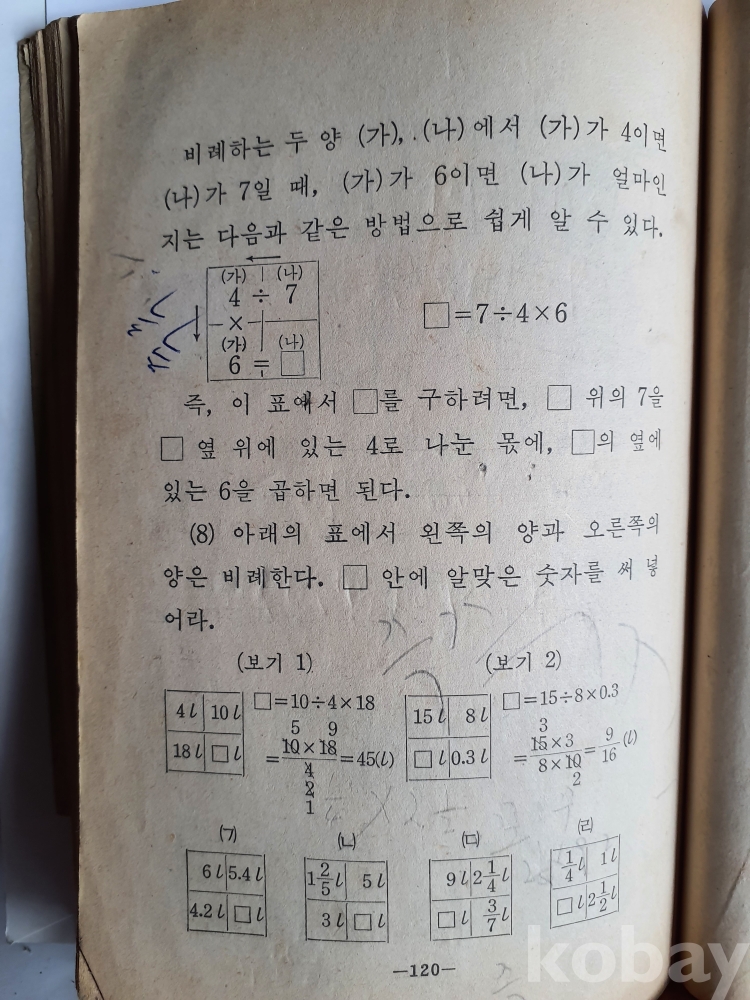 비례하는 두 양 (가), (나)에서 (가)가 4이면
(나)가 7일 때, (가)가 6이면 (나)가 얼마인
지는 다음과 같은 방법으로 쉽게 알 수 있다.
(가) (나)
4 ÷ 7
×
(가) (나)
6 = □
□=7÷4×6
즉, 이 표에서 □를 구하려면, □ 위의 7을
□ 옆 위에 있는 4로 나눈 몫에, □의 옆에
있는 6을 곱하면 된다.
(8) 아래의 표에서 왼쪽의 양과 오른쪽의
양은 비례한다. □ 안에 알맞은 숫자를 써 넣
어라.
(보기 1)
4l 10l
18l □l
□=10÷4×18
5 9
=10×18/4=45(l)
2
1
(보기 2)
15l 8l
□l 0.3l
□=15÷8×0.3
3
=15×3/8×10=9/16(l)
2
(ㄱ)
6l 5.4l
4.2l □l
(ㄴ)
1 2/5l 5l
3l □l
(ㄷ)
9l 2 1/4l
□l 3/7l
(ㄹ)
1/4l 1l
□l 2 1/2l
—120—
kobay